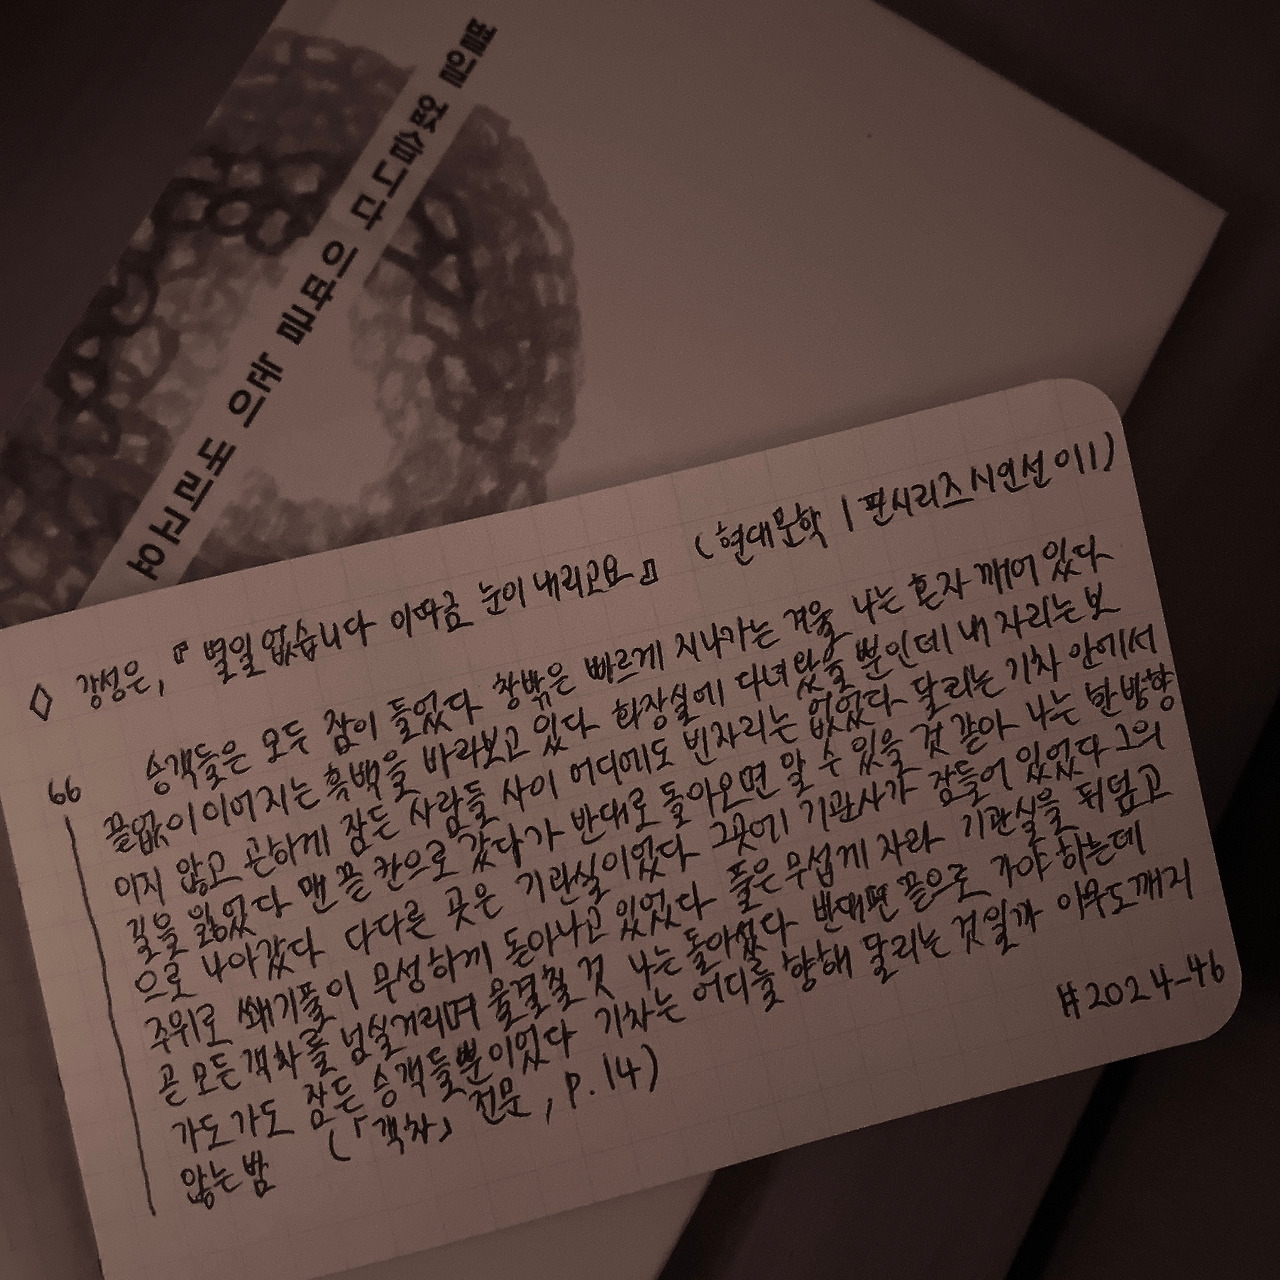 별일 없습니다 이따금 눈이 내리고요
◇ 강성은, 『별일 없습니다 이따금 눈이 내리고요』 (현대문학 | 핀시리즈시인선 011)
66 승객들은 모두 잠이 들었다 창밖은 빠르게 지나가는 겨울 나는 혼자 깨어 있다
끝없이 이어지는 흑백을 바라보고 있다 화장실에 다녀왔을 뿐인데 내 자리는 보
이지 않고 곤하게 잠든 사람들 사이 어디에도 빈자리는 없었다 달리는 기차 안에서
길을 잃었다 맨 끝 칸으로 갔다가 반대로 돌아오면 알 수 있을 것 같아 나는 한 방향
으로 나아갔다 다다른 곳은 기관실이었다 그곳에 기관사가 잠들어 있었다 그의
주위로 쐐기풀이 무성하게 돋아나고 있었다 풀은 무섭게 자라 기관실을 뒤덮고
곧 모든 객차를 넘실거리며 물결칠 것 나는 돌아섰다 반대편 끝으로 가야 하는데
가도 가도 잠든 승객들뿐이었다 기차는 어디를 향해 달리는 것일까 아무도 깨지
않는 밤 (「객차」 전문, p.14)
#2024-46